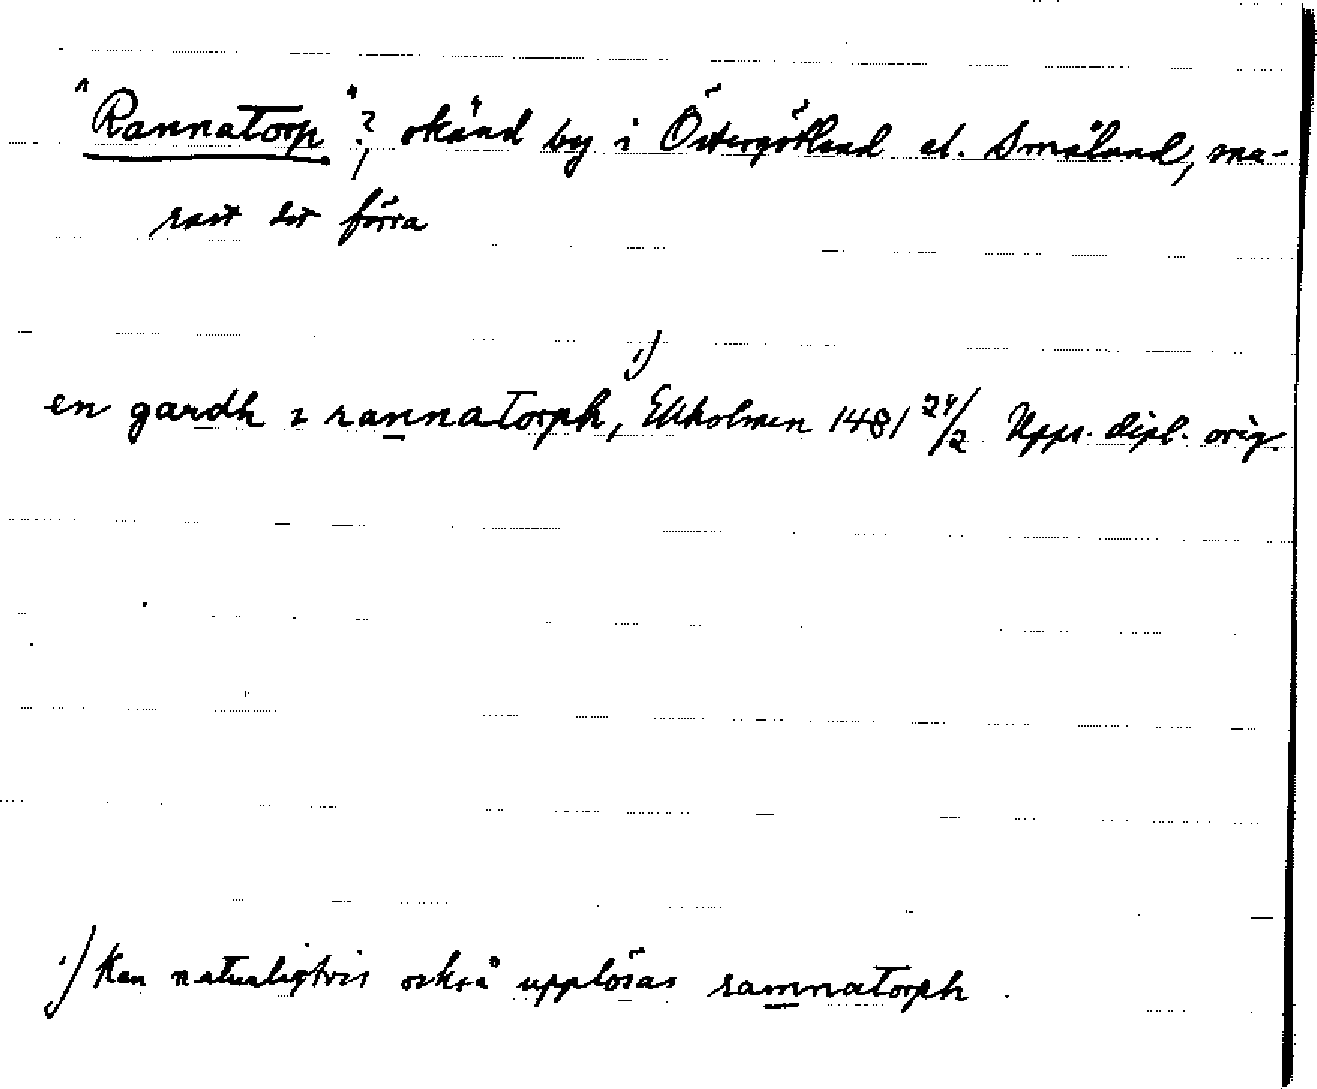 "Rannatorp"?, okänd by i Östergötland el. Småland, sna-
rast det förra
en gardh i rannatorph, 1) Ekholmen 1481 24/2 Upps. dipl. orig.
1) Kan naturligtvis också upplösas ramnatorph.